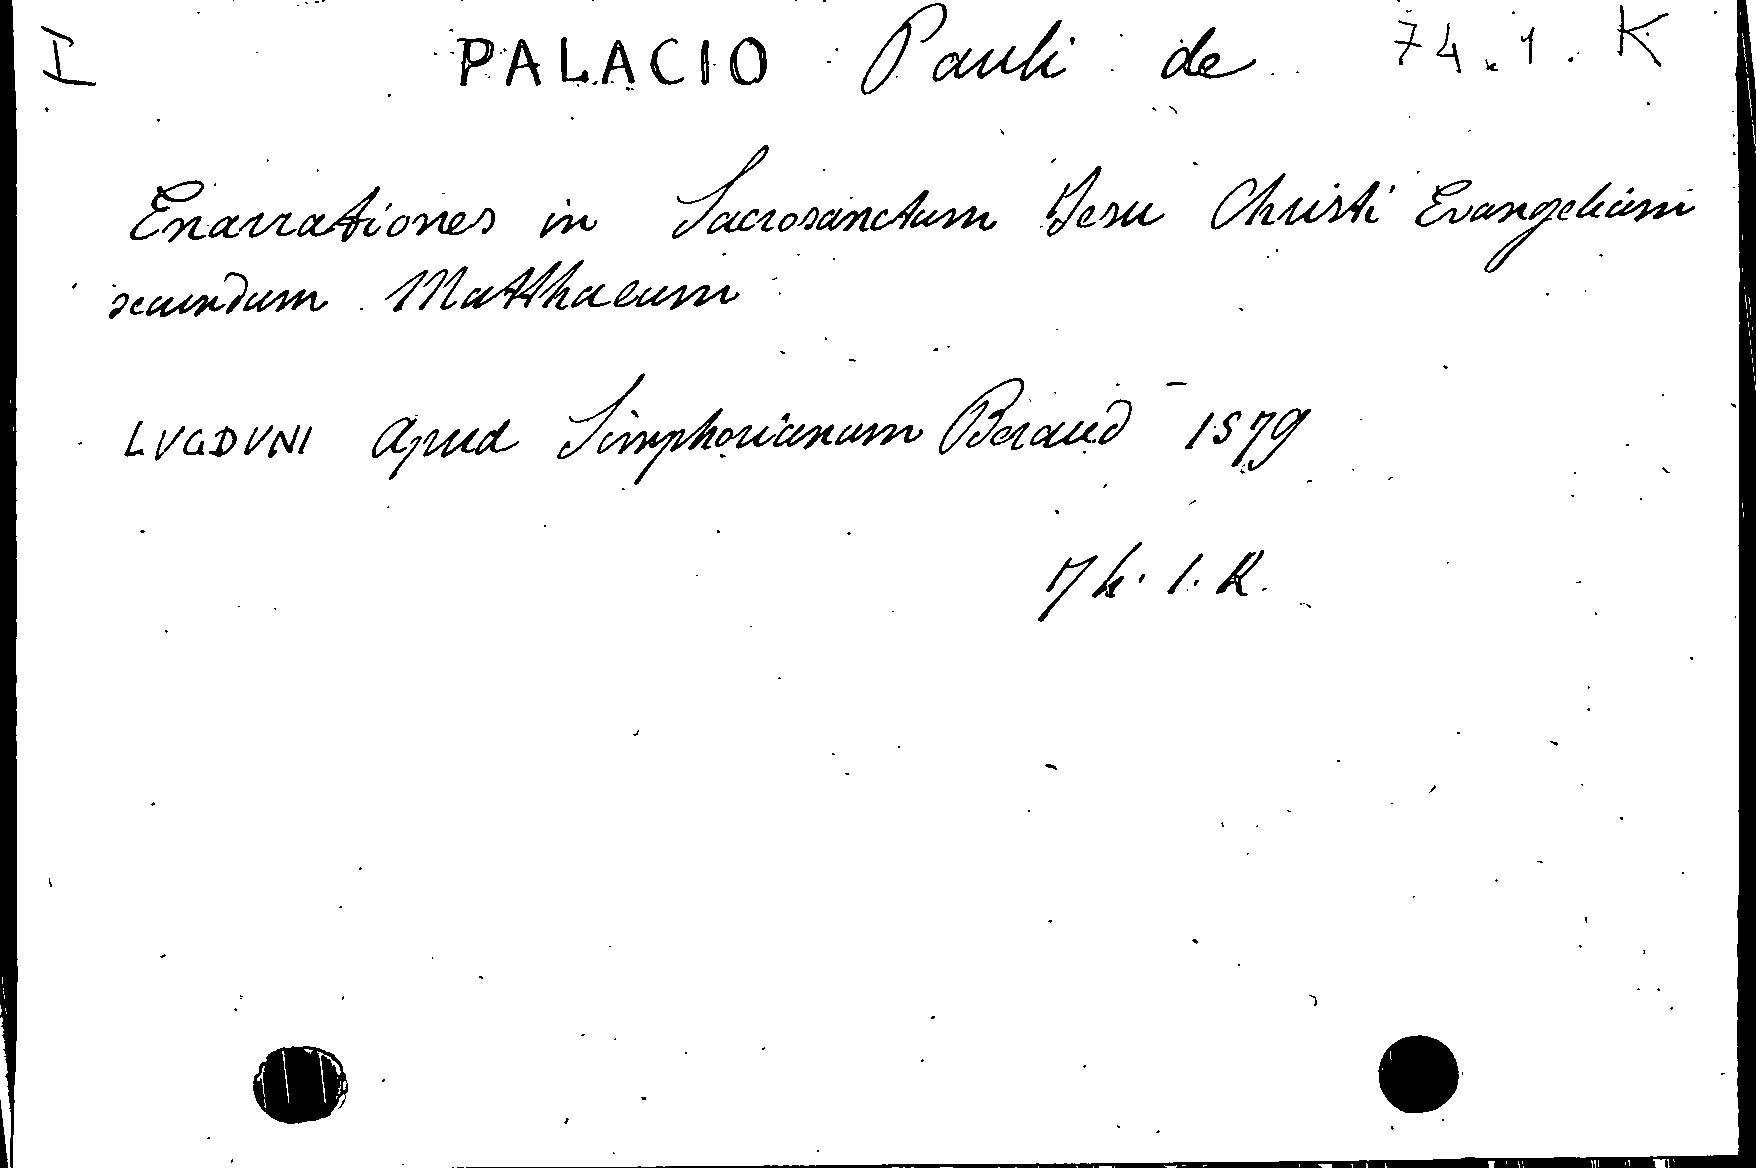 I PALACIO Pauli de 74.1.K
Enarrationes in Sacrosanctum Jesu Christi Evangelium
secundum Matthaeum
LVGDVNI Apud Simphorianum Beraud - 1579
74.1.K.